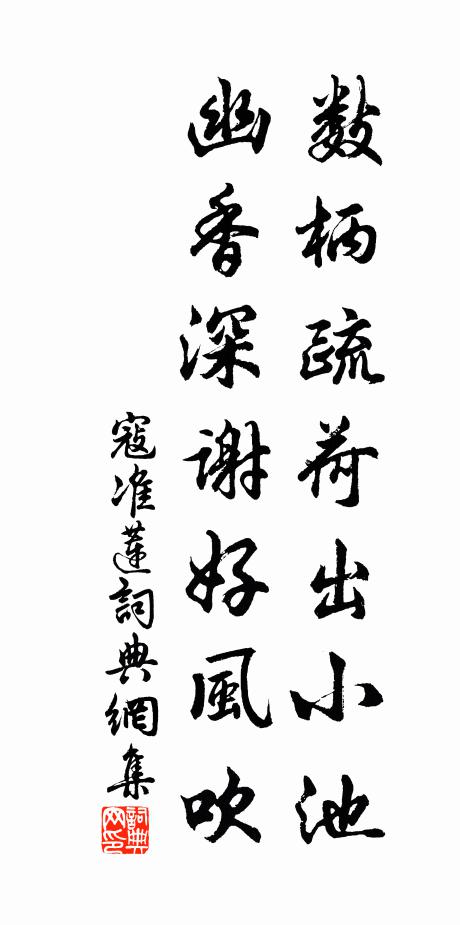 數柄疏荷出小池
幽香深謝好風吹
寇准蓮詞典網集
詞典網印